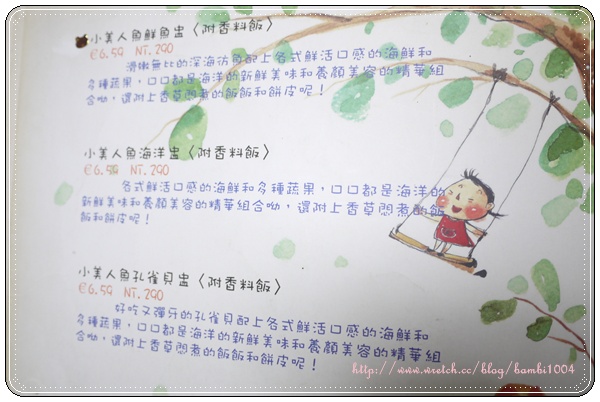 小美人魚鮮魚盅〈附香料飯〉
€6.59 NT.290
滑嫩無比的深海魴魚配上各式鮮活口感的海鮮和
多種蔬果，口口都是海洋的新鮮美味和養顏美容的精華組
合呦，還附上香草悶煮的飯飯和餅皮呢！
小美人魚海洋盅〈附香料飯〉
€6.59 NT.290
各式鮮活口感的海鮮和多種蔬果，口口都是海洋的
新鮮美味和養顏美容的精華組合呦，還附上香草悶煮的飯
飯和餅皮呢！
小美人魚孔雀貝盅〈附香料飯〉
€6.59 NT.290
好吃又彈牙的孔雀貝配上各式鮮活口感的海鮮和
多種蔬果，口口都是海洋的新鮮美味和養顏美容的精華組
合呦，還附上香草悶煮的飯飯和餅皮呢！
http://www.wretch.cc/blog/bambi1004